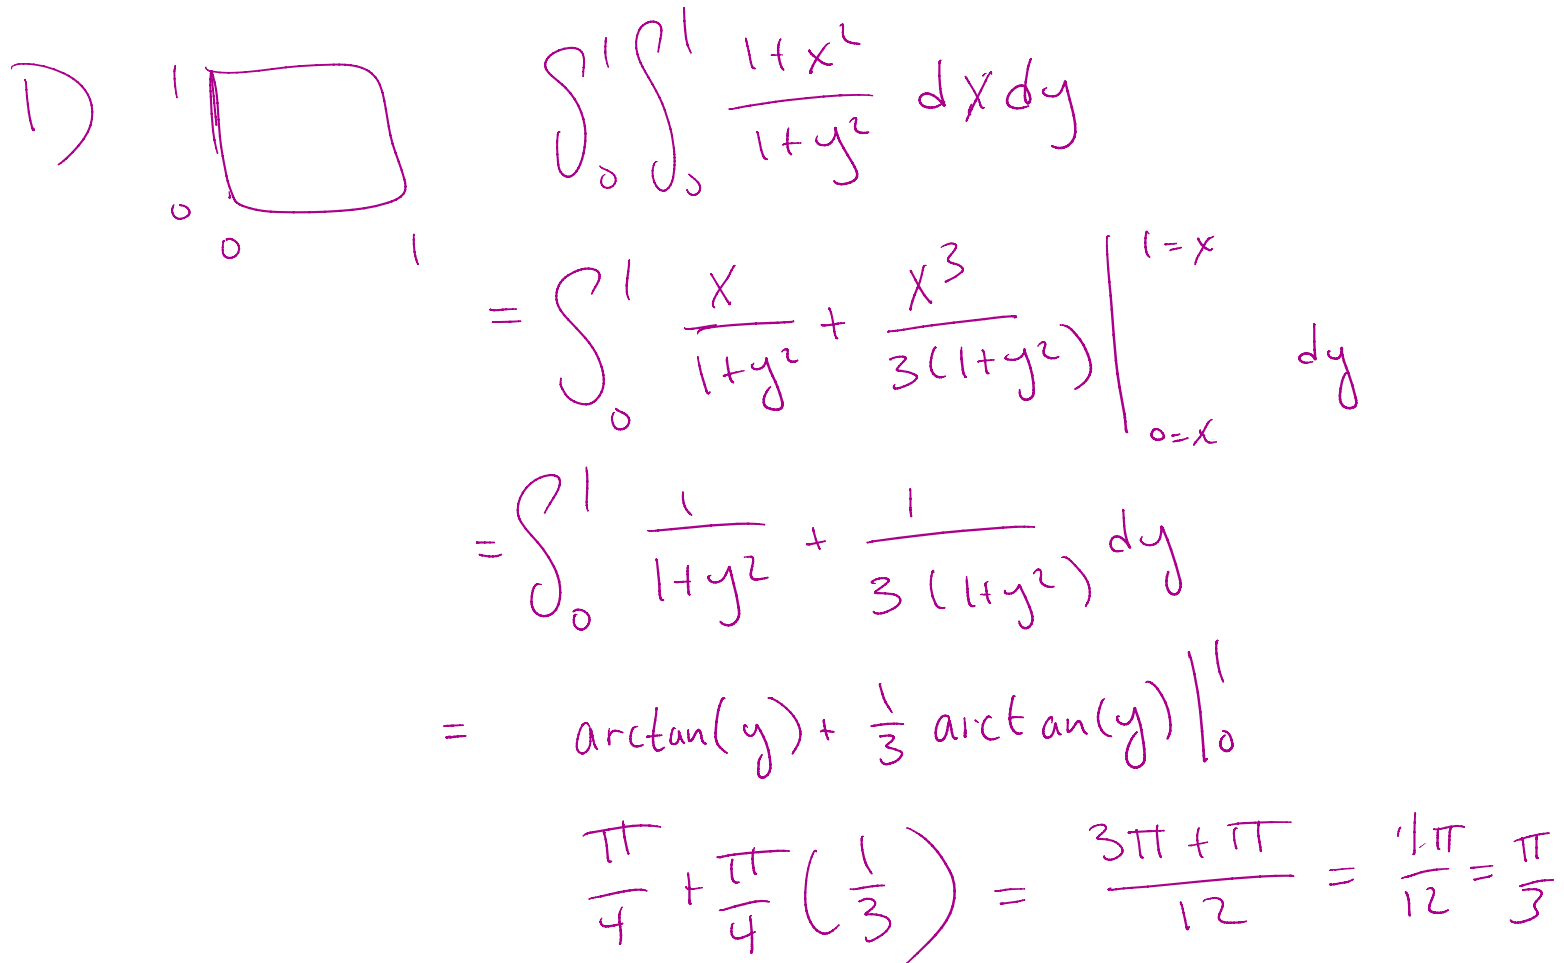 D) 1 0 0 1 ∫₀¹ ∫₀¹ (1+x²)/(1+y²) dx dy
= ∫₀¹ x/(1+y²) + x³/(3(1+y²)) | 1=x 0=x dy
= ∫₀¹ 1/(1+y²) + 1/(3(1+y²)) dy
= arctan(y) + 1/3 arctan(y) |₀¹
π/4 + π/4 (1/3) = (3π + π)/12 = 4π/12 = π/3